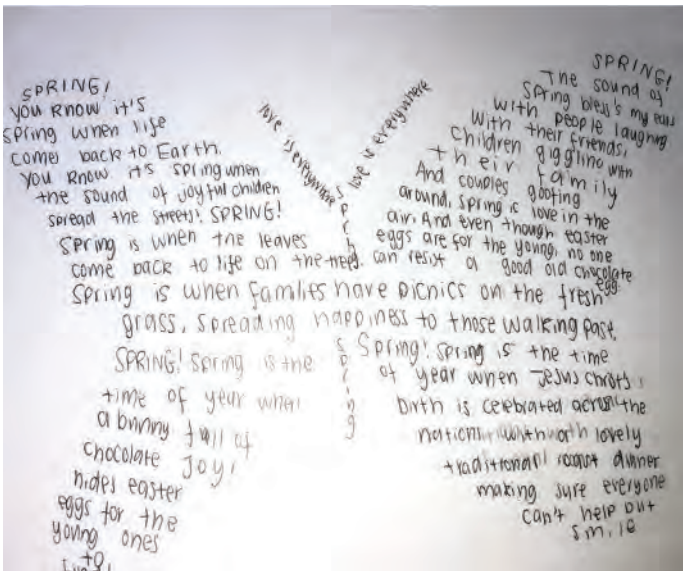 SPRING!
you know it's
spring when life
comes back to Earth.
you know it's spring when
the sound of joyful children
spread the streets! SPRING!
Spring is when the leaves
come back to life on the trees.
love is everywhere
love is everywhere
spring
SPRING!
The sound of
Spring bless's my ears
with people laughing
with their friends,
Children giggling with
their family
And couples goofing
around. Spring is love in the
air. And even though easter
eggs are for the young, no one
can resist a good old chocolate
egg.
Spring is when families have picnics on the fresh
grass, spreading happiness to those walking past.
SPRING! Spring is the
time of year when
a bunny full of
chocolate Joy!
hides easter
eggs for the
young ones
to
spring
Spring! Spring is the time
of year when Jesus Christs
birth is celebrated across the
nation, with lovely
traditional roast dinner
making sure everyone
can't help but
smile